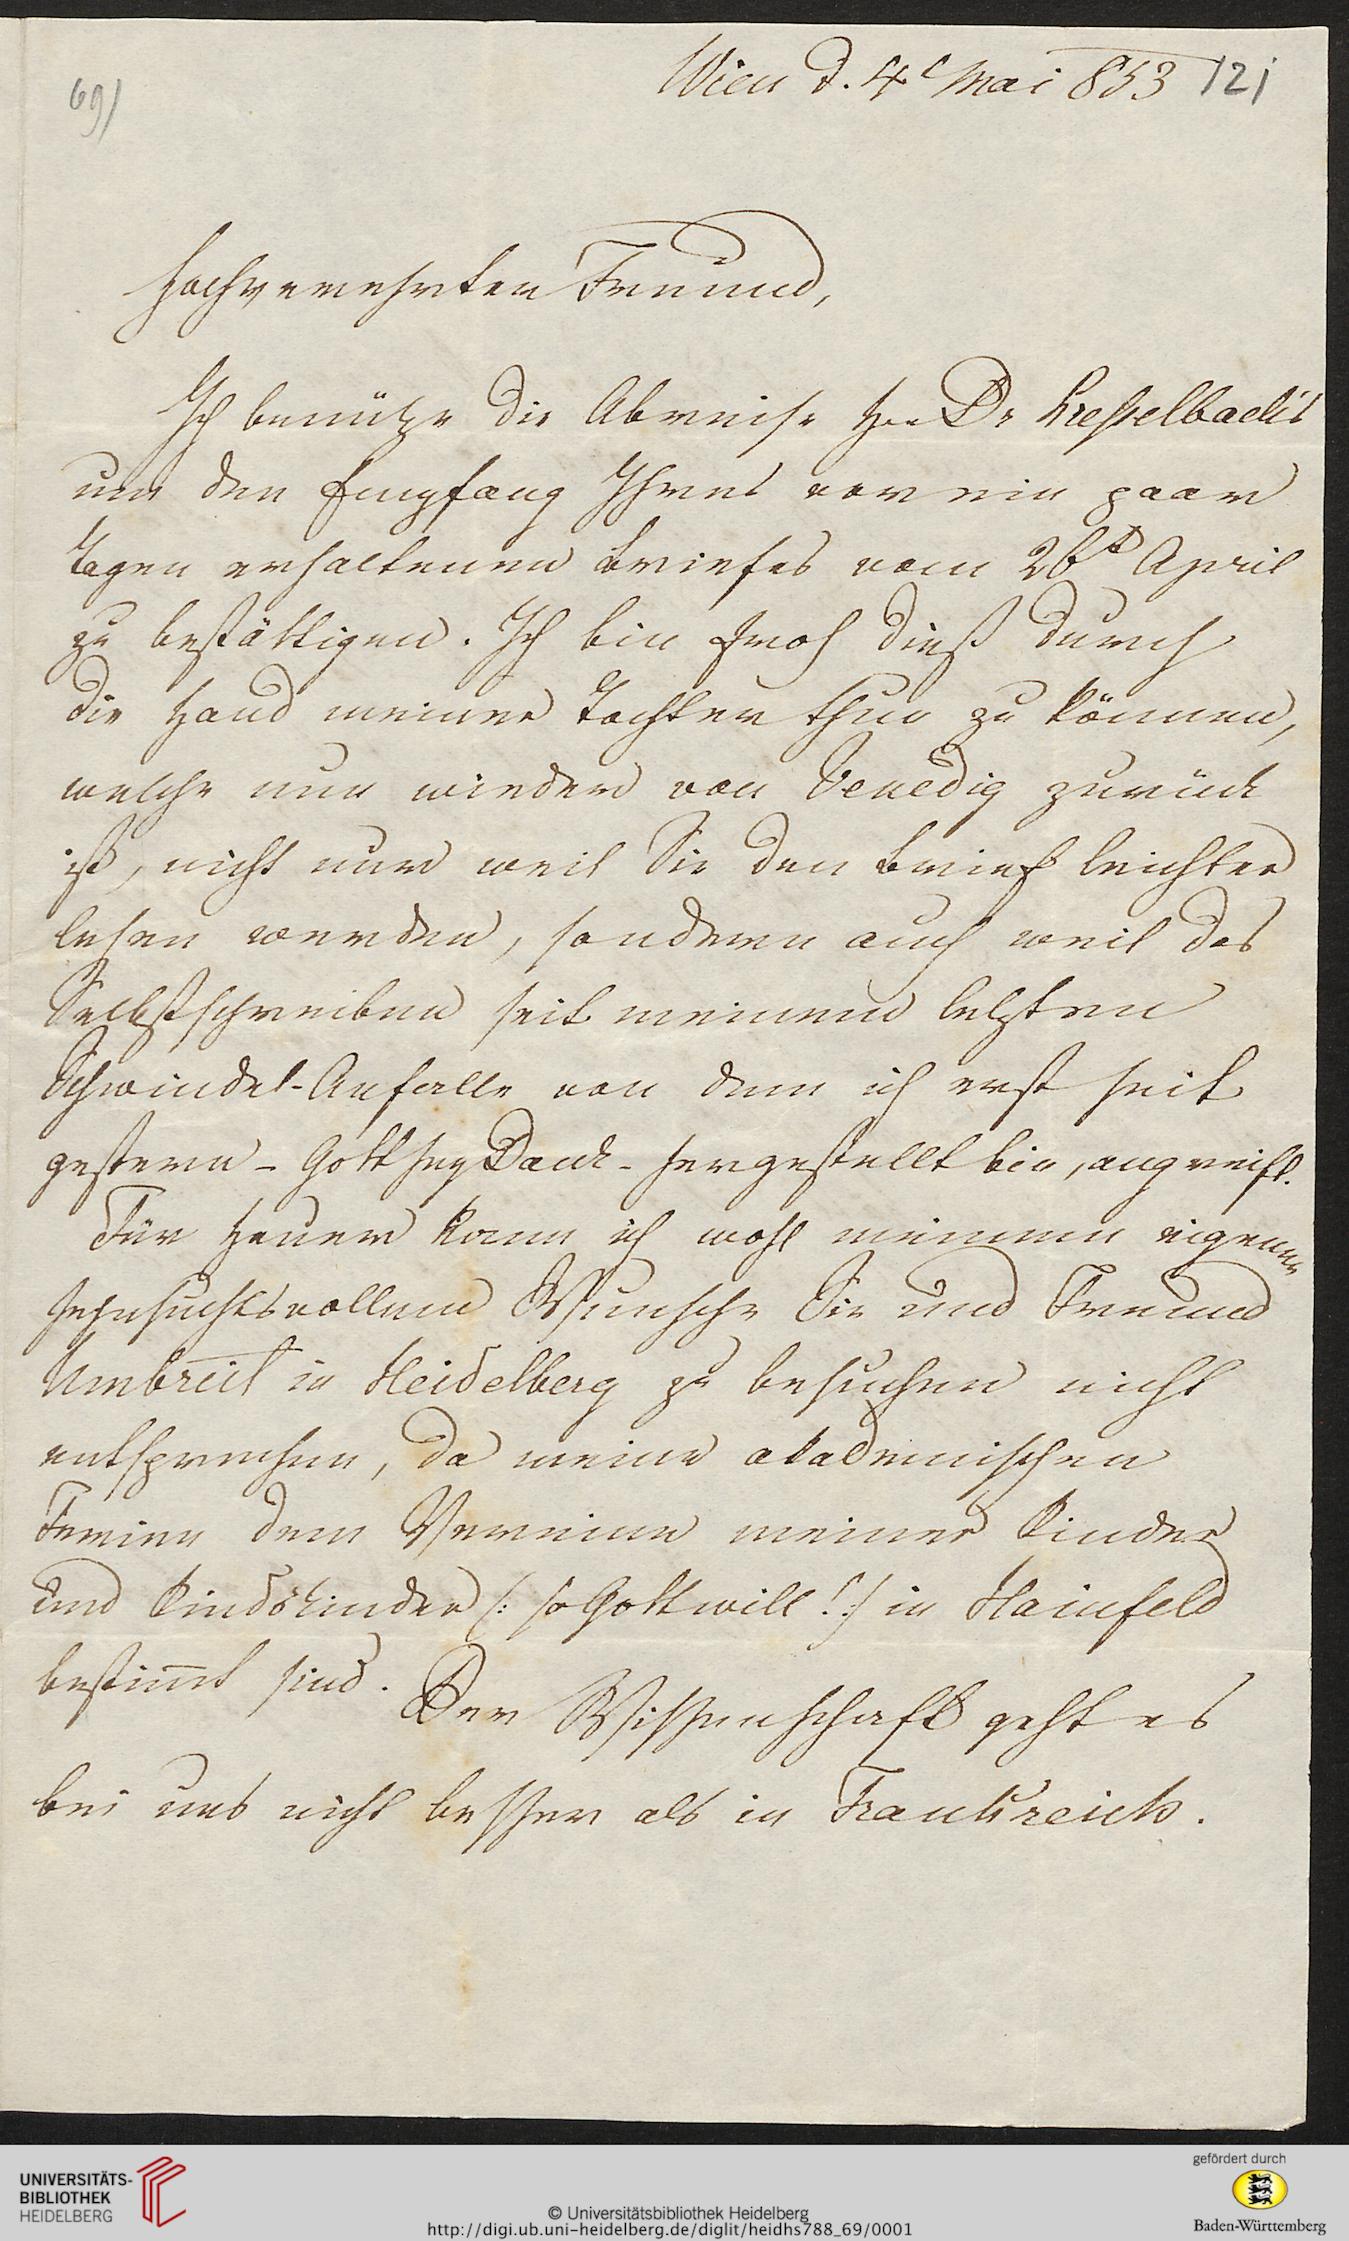 69)
Wien d. 4t Mai 853 121
Hochverehrter Freund,
Ich benütze die Abreise Hrn Dr Kesselbach's
um den Empfang Ihres vor ein paar
Tagen erhaltenen Briefes vom 26t April
zu bestättigen. Ich bin froh dieß durch
die Hand meiner Tochter thun zu können,
welche nun wieder von Venedig zurück
ist, nicht nur weil Sie den Brief leichter
lesen werden, sondern auch weil das
Selbstschreiben seit meinem letzten
Schwindel-Anfalle von dem ich erst seit
gestern - Gott sey Dank - hergestellt bin, angreift.
Für heuer kann ich wohl meinem eigenen
sehnsuchtsvollem Wunsche Sie und Freund
Umbreit in Heidelberg zu besuchen nicht
entsprechen, da meine akademischen
Ferien dem Vereine meiner Kinder
und Kindskinder (: so Gott will! :) in Hainfeld
bestim̅t sind. Der Wissenschaft geht es
bei uns nicht besser als in Frankreich.
UNIVERSITÄTS-
BIBLIOTHEK
HEIDELBERG
© Universitätsbibliothek Heidelberg
http://digi.ub.uni-heidelberg.de/diglit/heidhs788_69/0001
gefördert durch
Baden-Württemberg